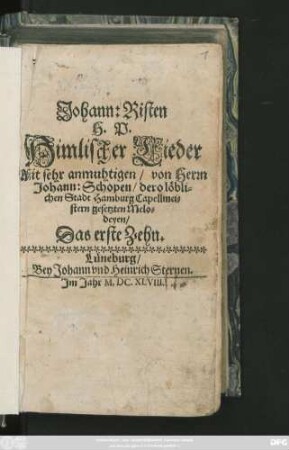 Johann: Risten
H. P.
Himlischer Lieder
Mit sehr anmuhtigen/ von Herrn
Johann: Schopen/ dero löbli-
chen Stadt Hamburg Capellmei-
stern gesetzten Melo-
deyen/
Das erste Zehn.
Lüneburg/
Bey Johann vnd Heinrich Sternen.
Im Jahr M. DC. XLVIII.